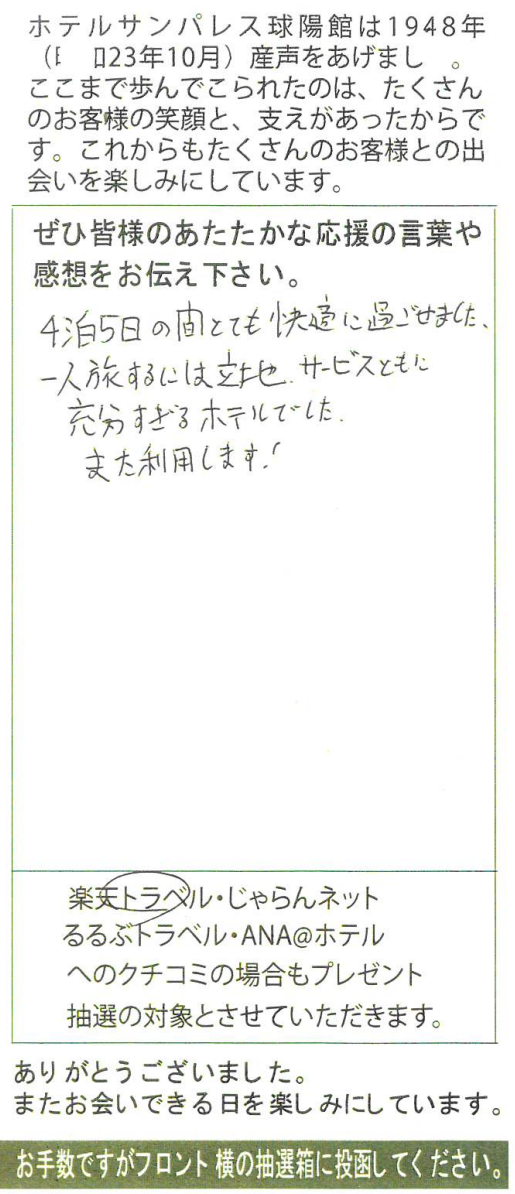 ホテルサンパレス球陽館は1948年
（ 23年10月）産声をあげまし 。
ここまで歩んでこられたのは、たくさん
のお客様の笑顔と、支えがあったからで
す。これからもたくさんのお客様との出
会いを楽しみにしています。
ぜひ皆様のあたたかな応援の言葉や
感想をお伝え下さい。
4泊5日の間とても快適に過ごせました、
一人旅するには立地、サービスともに
充分すぎるホテルでした.
また利用します!
楽天トラベル・じゃらんネット
るるぶトラベル・ANA@ホテル
へのクチコミの場合もプレゼント
抽選の対象とさせていただきます。
ありがとうございました。
またお会いできる日を楽しみにしています。
お手数ですがフロント横の抽選箱に投函してください。